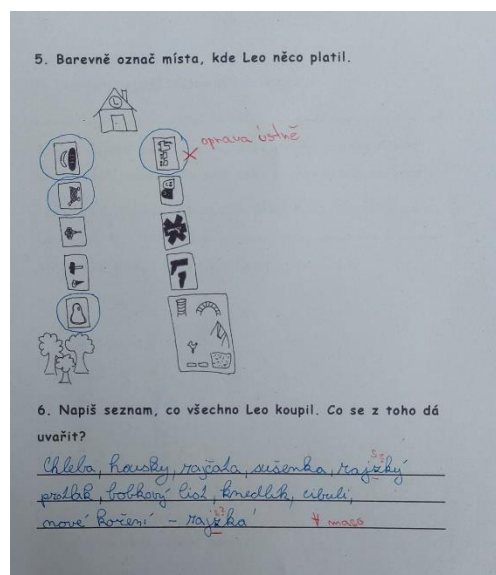 5. Barevně označ místa, kde Leo něco platil.
oprava ústně
6. Napiš seznam, co všechno Leo koupil. Co se z toho dá
uvařit?
Chleba, housky, rajčata, sušenka, rajzký
protlak, bobkový list, knedlík, cibuli,
nové koření - rajzká
maso